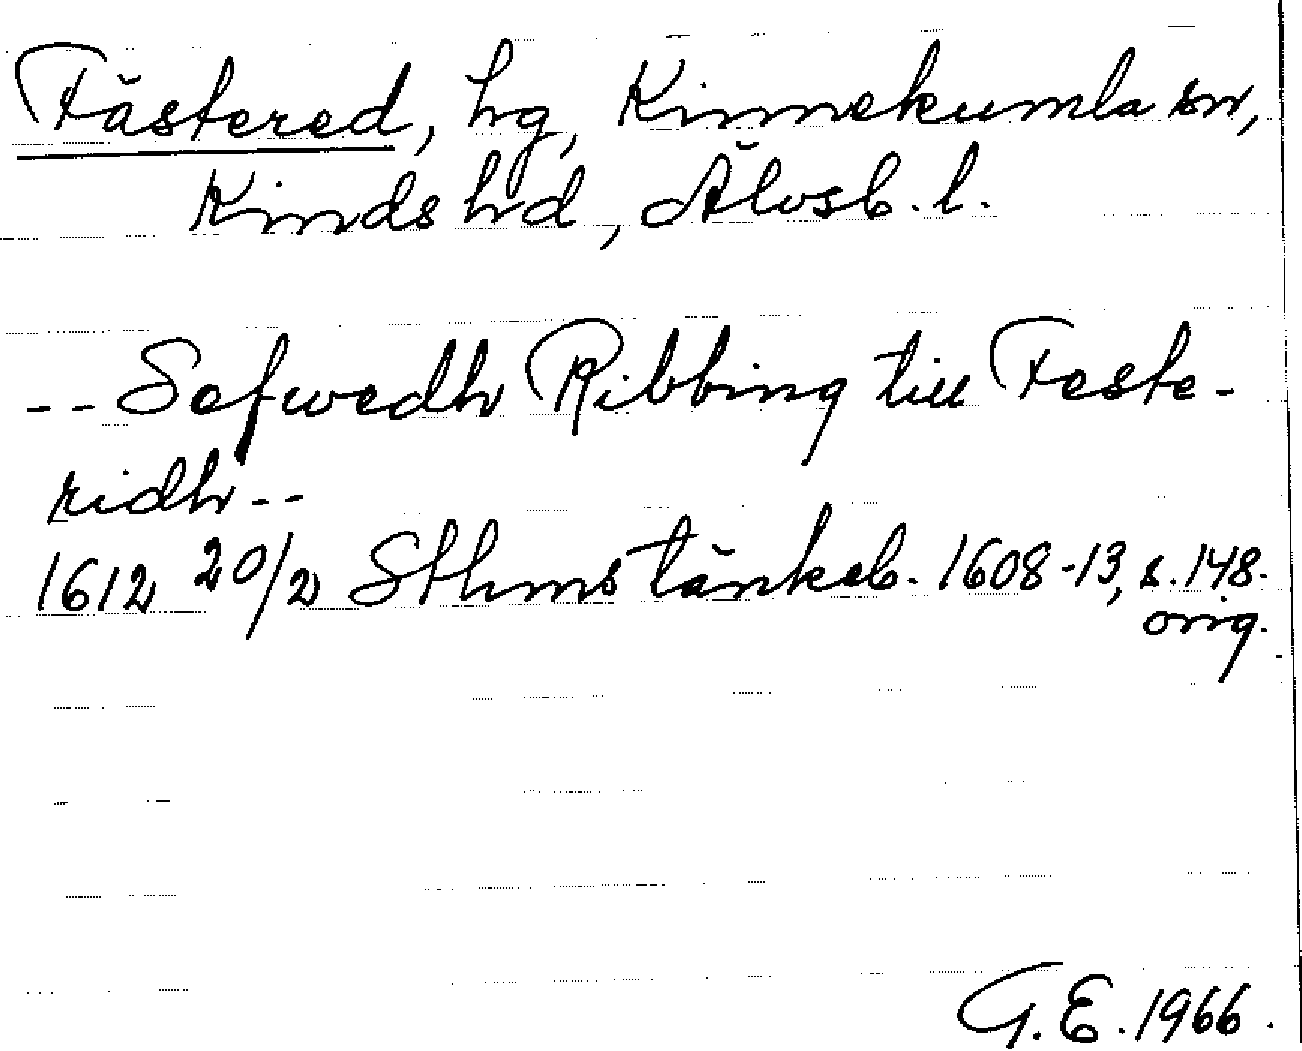 Fästered, hg, Kinnekumla sn,
Kinds hd, Älvsb. l.
-- Sefwedh Ribbing till Feste-
ridh --
1612 20/2 Sthms tänkeb. 1608-13, s. 148.
orig.
G. E. 1966.